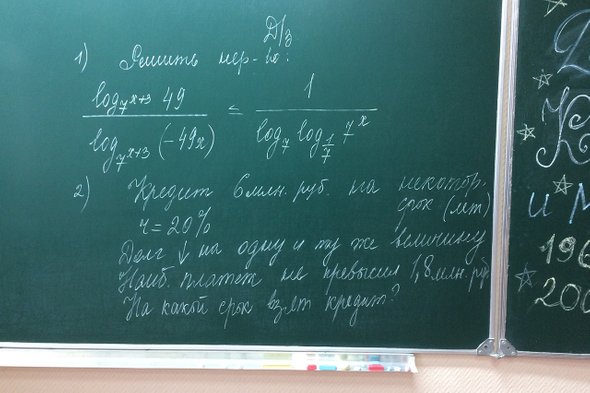 Д/з
1) Решить нер-во:
log_{7^{x+3}} 49 / log_{7^{x+3}} (-49x) ≤ 1 / log_7 log_{1/7} 7^x
2) Кредит 6 млн. руб. на некотор. срок (лет)
r = 20%
Долг ↓ на одну и ту же величину
Наиб. платеж не превысил 1,8 млн. руб
На какой срок взят кредит?
и М
196
200